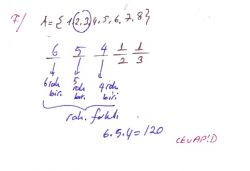 7/ A={1,2,3,4,5,6,7,8}
6 5 4 1/2 1/3
6 rak. 5 rak. 4 rak.
biri. biri. biri.
rak. farklı
6.5.4=120
CEVAP:D